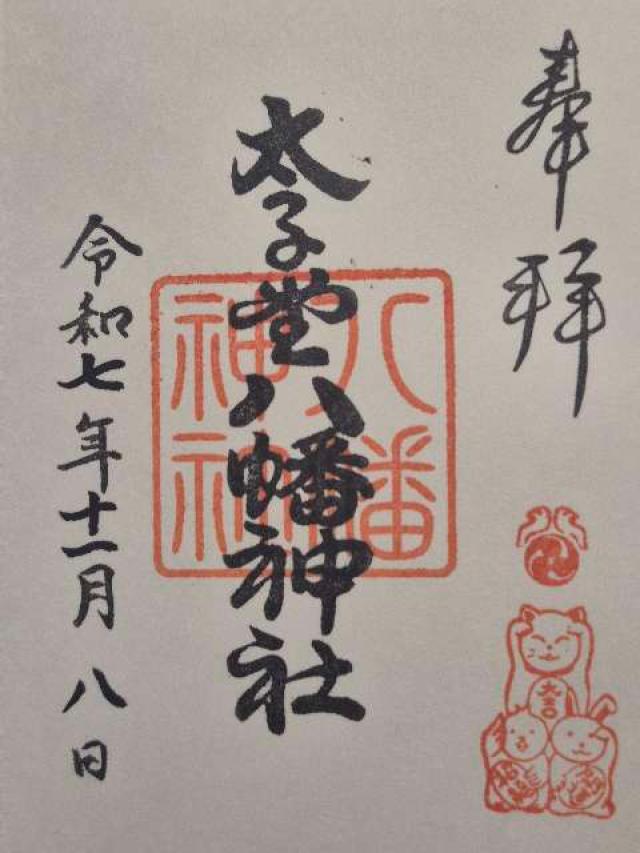 奉拝
太子堂八幡神社
八幡神社
令和七年十一月八日
大吉